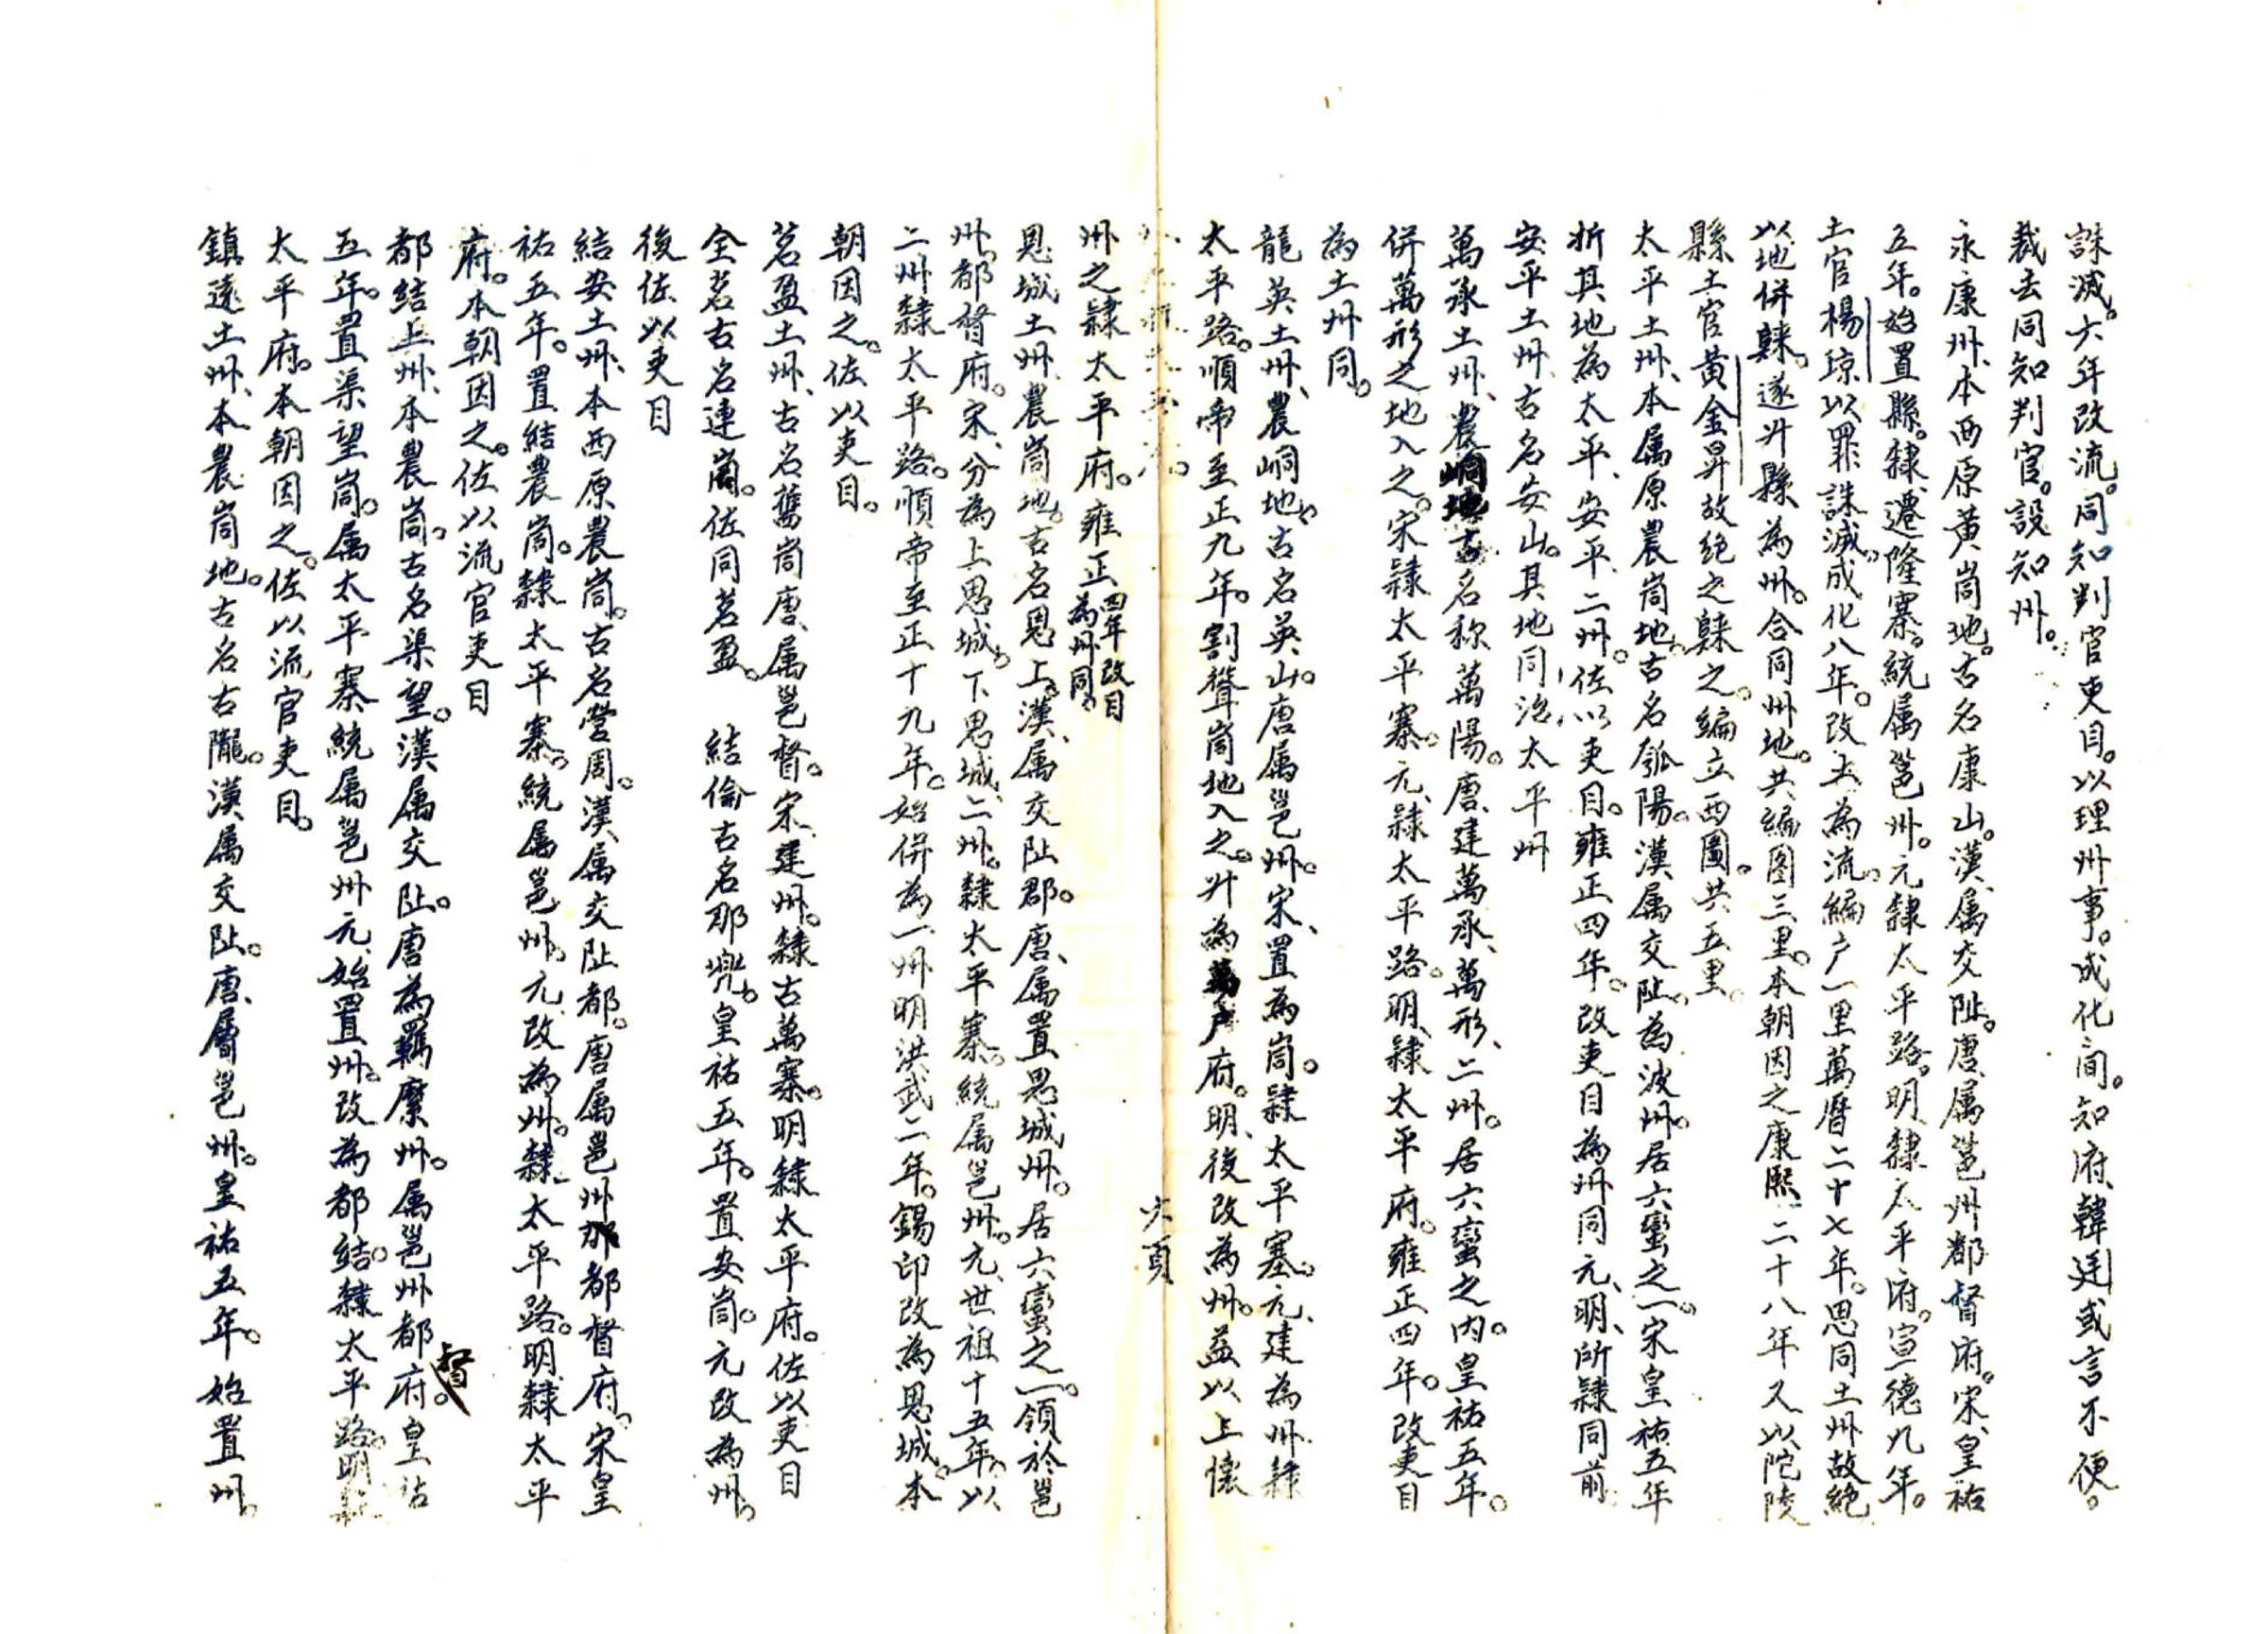 誅滅。六年改流。同知判官吏目。以理州事。成化间。知府韓廷彧言不便。
裁去同知判官。設知州。
永康州、本西原黄峝地。古名康山。漢、属交阯。唐、属邕州都督府。宋、皇祐
五年。始置縣。隸遷隆寨。統属邕州。元隸太平路。明、隸太平府。宣德九年。
土官楊琼以罪誅滅。成化八年。改土為流。編户一里萬曆二十七年。思同土州故絕
以地併隸。遂升縣為州。合同州地。共編图三里。本朝因之康熙、二十八年又以陀陵
縣土官黄金昇故绝之隸之。編立西圖。共五里。
太平土州、本属原農峝地。古名瓠陽。漢属交阯。為波州。居六蠻之一。宋皇祐五年
折其地為太平、安平、二州。佐以吏目。雍正四年。改吏目為州同元、明、所隸同前
安平土州、古名安山。其地同治、太平州
萬承土州、農峒地古名称萬陽。唐、建萬承、萬形、二州。居六蠻之内。皇祐五年。
併萬形之地入之。宋隸太平寨。元、隸太平路。明、隸太平府。雍正四年。改吏目
為土州同。
龍英土州、農峒地。古名英山。唐属邕州。宋、置為峝。隸太平塞。元、建為州隸
太平路。順帝至正九年。割聳峝地入之。升為萬户府。明、後改為州。益以上懐
六頁
州之隸太平府。雍正四年改目為州同。
思城土州、農峝地。古名思上。漢、属交阯郡。唐、属置思城州。居六蠻之一。領於邕
州、都督府。宋、分為上思城。下思城、二州。隸太平寨。統属邕州。元、世祖十五年、以
二州隸太平路。順帝至正十九年。始併為一州明洪武二年。錫印改為思城。本
朝因之。佐以吏目。
茗盈土州、古名舊峝唐、属邕督。宋、建州。隸古萬寨。明隸太平府。佐以吏目
全茗古名連峝。佐同茗盈。 結倫古名那兜。皇祐五年。置安峝。元改為州。
後佐以吏目
結安土州、本西原農峝。古名營周。漢属交阯都。唐属邕州都督府。宋皇
祐五年。置結農峝。隸太平寨。統属邕州。元、改為州。隸太平路。明隸太平
府。本朝因之。佐以流官吏目
都結上州、本農峝。古名渠望。漢属交阯。唐為羈縻州。属邕州都督府。皇祐
五年。置渠望峝。属太平寨統属邕州元、始置州。改為都結。隸太平路。明隸
太平府。本朝因之。佐以流官吏目。
鎮遠土州、本農峝地。古名古隴。漢属交阯。唐、屬邕州。皇祐五年。始置州。